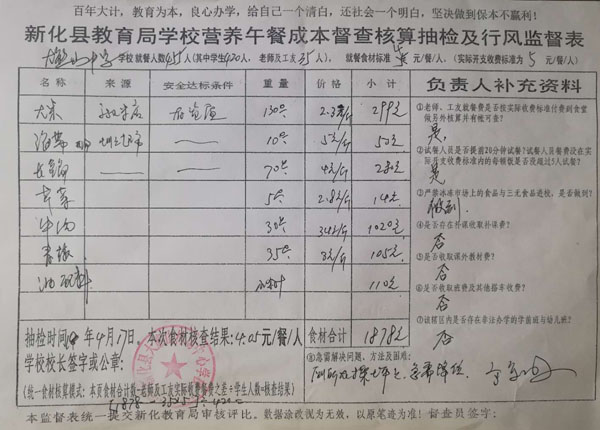 百年大计，教育为本，良心办学，给自己一个清白，还社会一个明白，坚决做到保本不赢利！
新化县教育局学校营养午餐成本督查核算抽检及行风监督表
学校就餐人数455人(其中学生420人，老师及工友35人)，就餐食材标准 元/餐/人，(实际开支收费标准为5元/餐/人)
名称 来源 安全达标条件 重量 价格 小计 负责人补充资料
大米 130斤 2.3元/斤 299元
10斤 5元/斤 50元
70斤 4元/斤 280元
5斤 2.8元/斤 14元
牛肉 30斤 34元/斤 1020元
35斤 3元/斤 105元
110元
①老师、工友就餐费是否按实际收费标准付费到食堂做另外核算并有账可查？
是
②试餐人员是否提前20分钟试餐？试餐人员餐费没在实际开支收费标准内的每顿饭是否没超过5人试餐？
是
③严禁冰冻市场上的食品与三无食品进校，是否做到？
做到
④是否存在补课收取补课费？
否
⑤是否收取课外教材费？
否
⑥是否收取班费及其他搭车收费？
否
⑦该辖区内是否存在非法办学的学前班与幼儿班？
否
抽检时间 年4月17日。本次食材核查结果：4.05元/餐/人 食材合计 1878元
学校校长签字或公章：
⑧急需解决问题、方法及困难：
(统一食材核算模式：本页食材合计数-老师及工友实际收费餐费之差÷学生人数=核查结果)
1878-35×5÷420=
本监督表统一提交新化教育局审核评比。数据涂改视为无效，以原笔迹为准！督查员签字：